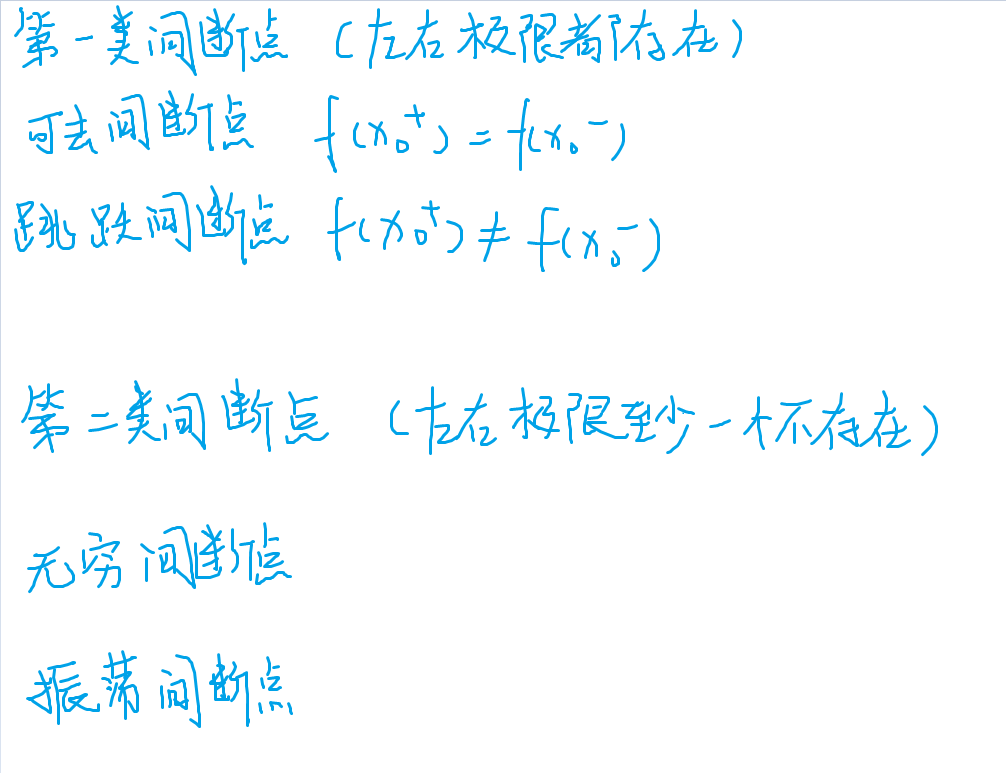 第一类间断点 (左右极限都存在)
可去间断点 f(x₀⁺) = f(x₀⁻)
跳跃间断点 f(x₀⁺) ≠ f(x₀⁻)
第二类间断点 (左右极限至少一个不存在)
无穷间断点
振荡间断点